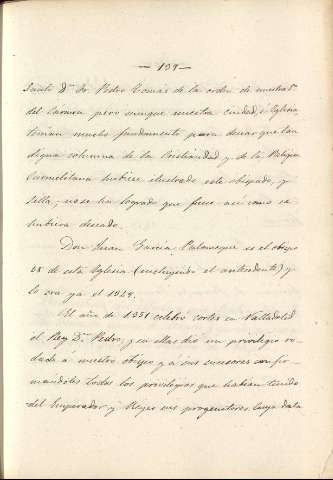 — 109 —
Santo Dn. Fr. Pedro Tomás de la orden de nuestra Sª.
del Carmen pero aunque nuestra ciudad, é Iglesia,
tenían mucho fundamento para desear que tan
digna columna de la Cristiandad y de la Religion
Carmelitana hubiese ilustrado este obispado, y
silla, no se ha logrado que fuese así como se
hubiera deseado.
Don Juan Garcia Palomeque es el obispo
28 de esta Iglesia (excluyendo el antecedente) y
lo era ya el
El año de 1351 celebró cortes en Valladolid
el Rey Dn. Pedro, y en ellas dió un privilegio ro-
dado á nuestro obispo y á sus sucesores confir-
mandoles todos los privilegios que habian tenido
del Emperador y Reyes sus progenitores cuya data